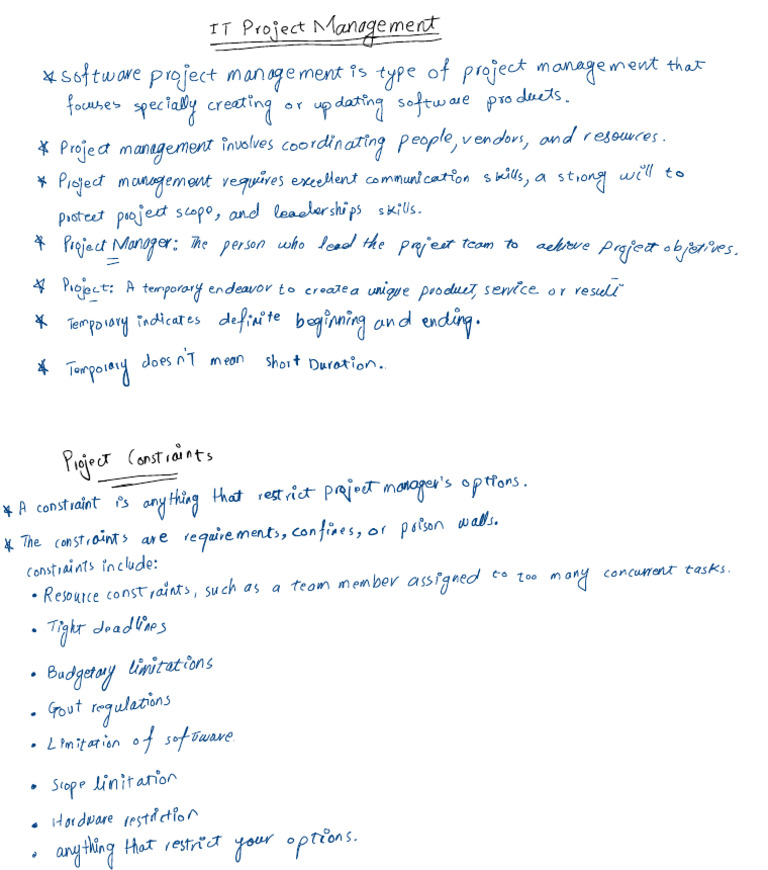 IT Project Management
* Software project management is type of project management that
focuses specially creating or updating software products.
* Project management involves coordinating people, vendors, and resources.
* Project management requires excellent communication skills, a strong will to
protect project scope, and leaderships skills.
* Project Manager: The person who lead the project team to achieve project objetives.
* Project: A temporary endeavor to create a unique product, service or result
* Temporary indicates definite beginning and ending.
* Temporary doesn't mean short Duration.
Project Constraints
* A constraint is anything that restrict project manager's options.
* The constraints are requirements, confines, or prison walls.
constraints include:
• Resource constraints, such as a team member assigned to too many concurrent tasks.
• Tight deadlines
• Budgetary limitations
• Govt regulations
• Limitation of software
• Scope limitation
• Hardware restriction
• anything that restrict your options.